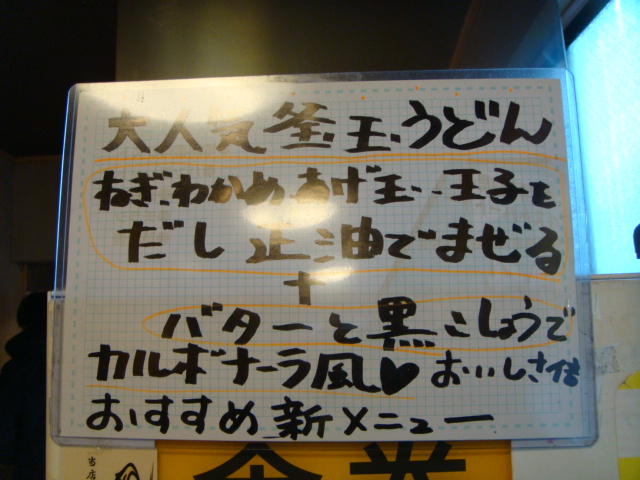 大人気釜玉うどん
ねぎ、わかめ、あげ玉、王子を
だし正油でまぜる
+
バターと黒こしょうで
カルボナーラ風♥おいしさ倍
おすすめ新メニュー
当店